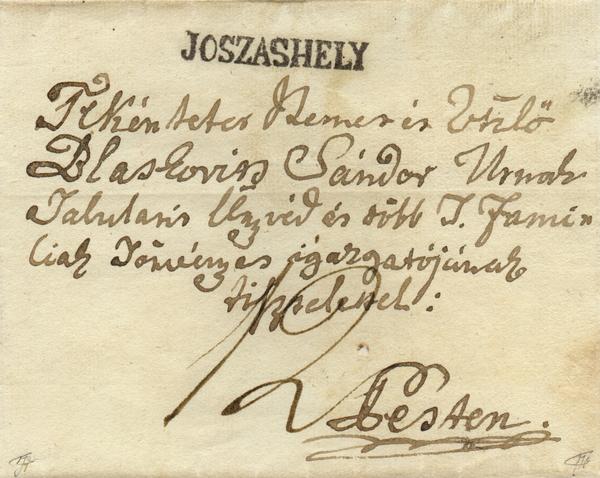 JOSZASHELY
Tekéntetes Nemes és Vitézlő
Blaskovics Sándor Urnak
Tabularis Ügyvéd és több T. Fami=
liak Törvényes igazgatójának
tisztelettel:
12
Pesten.